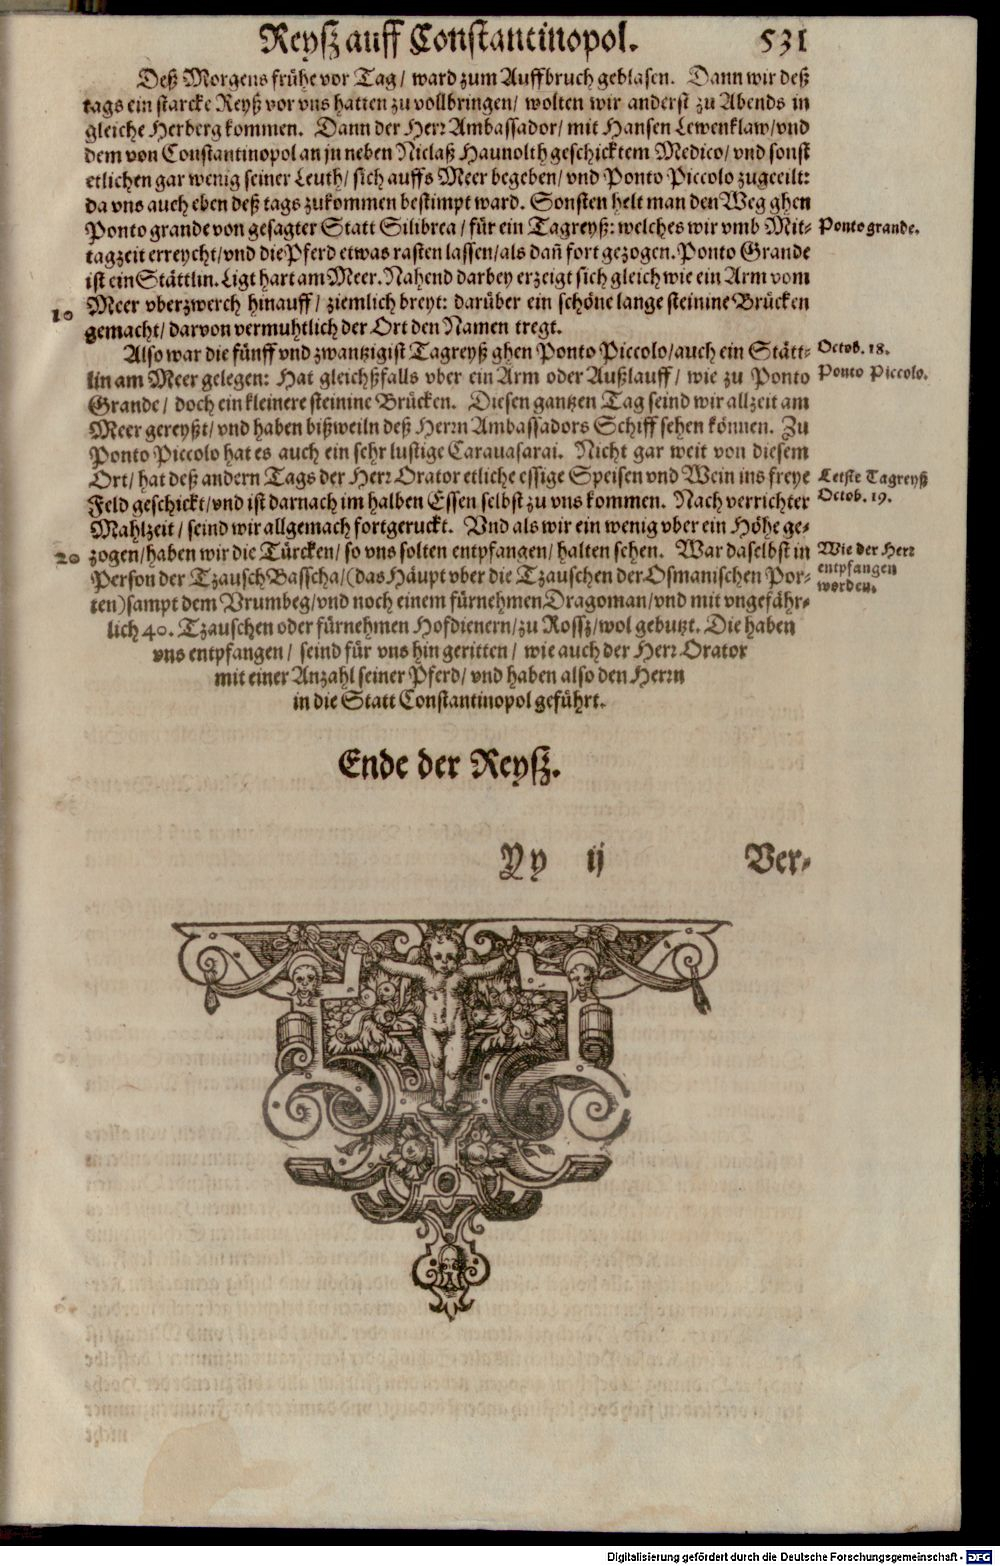 Reyſz auff Conſtantinopol. 531
Deß Morgens frühe vor Tag/ ward zum Auffbruch geblaſen. Dann wir deß
tags ein ſtarcke Reyß vor vns hatten zu vollbringen/ wolten wir anderſt zu Abends in
gleiche Herberg kommen. Dann der Herr Ambaſſador/ mit Hanſen Lewenklaw/ vnd
dem von Conſtantinopol an jn neben Niclaß Haunolth geſchicktem Medico/ vnd ſonſt
etlichen gar wenig ſeiner Leuth/ ſich auffs Meer begeben/ vnd Ponto Piccolo zugeeilt:
da vns auch eben deß tags zukommen beſtimpt ward. Sonſten helt man den Weg ghen
Ponto grande von geſagter Statt Silibrea/ für ein Tagreyß: welches wir vmb Mit-
Ponto grande.
tagzeit erreycht/ vnd die Pferd etwas raſten laſſen/ als dañ fort gezogen. Ponto Grande
iſt ein Stättlin. Ligt hart am Meer. Nahend darbey erzeigt ſich gleich wie ein Arm vom
Meer vberzwerch hinauff/ ziemlich breyt: darüber ein ſchöne lange ſteinine Brücken
10
gemacht/ darvon vermuhtlich der Ort den Namen tregt.
Alſo war die fünff vnd zwantzigiſt Tagreyß ghen Ponto Piccolo/ auch ein Stätt-
Octob. 18.
lin am Meer gelegen: Hat gleichßfalls vber ein Arm oder Außlauff/ wie zu Ponto
Ponto Piccolo.
Grande/ doch ein kleinere ſteinine Brücken. Dieſen gantzen Tag ſeind wir allzeit am
Meer gereyßt/ vnd haben bißweiln deß Herrn Ambaſſadors Schiff ſehen können. Zu
Ponto Piccolo hat es auch ein ſehr luſtige Caravaſarai. Nicht gar weit von dieſem
Ort/ hat deß andern Tags der Herr Orator etliche eſſige Speiſen vnd Wein ins freye
Letſte Tagreyß
Feld geſchickt/ vnd iſt darnach im halben Eſſen ſelbſt zu vns kommen. Nach verrichter
Octob. 19.
Mahlzeit/ ſeind wir allgemach fortgeruckt. Vnd als wir ein wenig vber ein Höhe ge-
20
zogen/ haben wir die Türcken/ ſo vns ſolten entpfangen/ halten ſehen. War daſelbſt in
Wie der Herr
Perſon der Tzauſch Baſſcha/ (das Häupt vber die Tzauſchen der Oſmaniſchen Por-
entpfangen
ten) ſampt dem Vrumbeg/ vnd noch einem fürnehmen Dragoman/ vnd mit vngefähr-
worden.
lich 40. Tzauſchen oder fürnehmen Hofdienern/ zu Roſſz/ wol gebutzt. Die haben
vns entpfangen/ ſeind für vns hin geritten/ wie auch der Herr Orator
mit einer Anzahl ſeiner Pferd/ vnd haben alſo den Herrn
in die Statt Conſtantinopol geführt.
Ende der Reyſz.
Yy ij Ver-
Digitalisierung gefördert durch die Deutsche Forschungsgemeinschaft - DFG